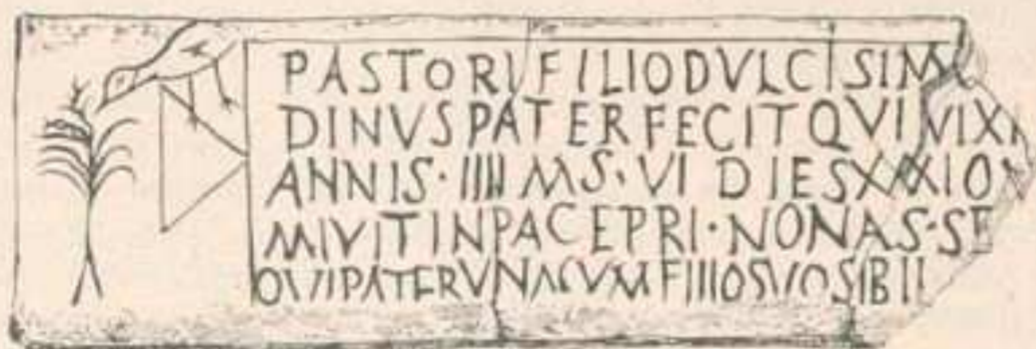 PASTORI FILIO DVLCISIM
DINVS PATER FECIT QVI VIXI
ANNIS · IIII MS · VI DIES XXXI
MIVIT IN PACE PRI · NONAS · SE
QVI PATER VNA CVM FILIO SVO SIBI